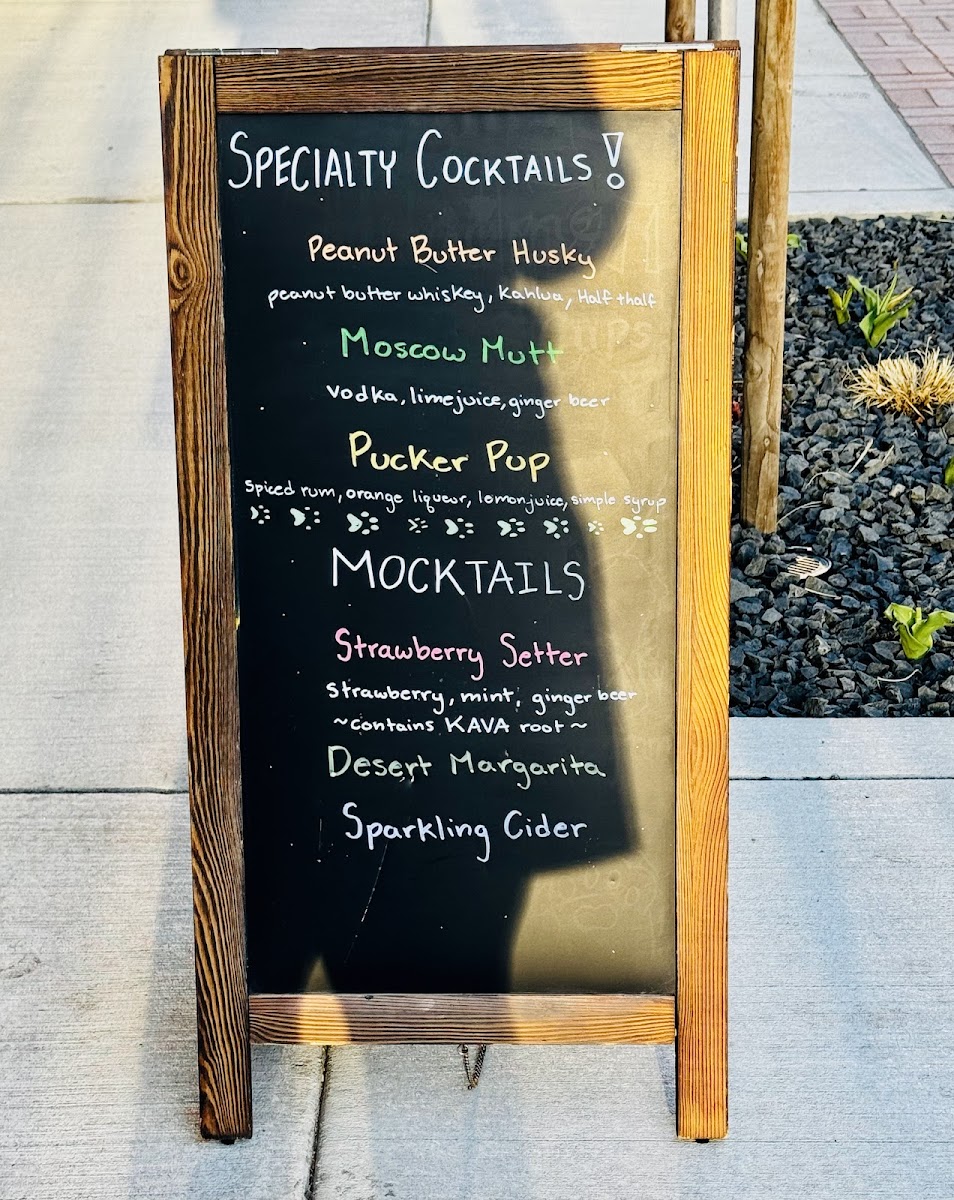 SPECIALTY COCKTAILS!
Peanut Butter Husky
peanut butter whiskey, Kahlua, Half + half
Moscow Mutt
vodka, lime juice, ginger beer
Pucker Pup
Spiced rum, orange liqueur, lemon juice, simple syrup
MOCKTAILS
Strawberry Setter
strawberry, mint, ginger beer
~contains KAVA root~
Desert Margarita
Sparkling Cider